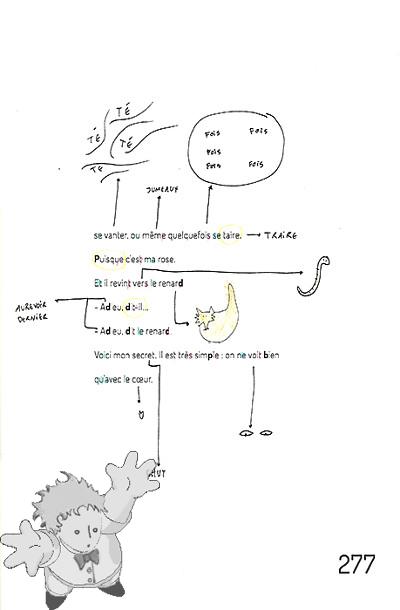 TÉ
TÉ
TÉ
TE
FOIS FOIS
FOIS
FOIS FOIS
JUMEAUX
se vanter, ou même quelquefois se taire. TRAIRE
Puisque c'est ma rose.
Et il revint vers le renard
AUREVOIR
DERNIER
- Adieu, dit-il...
- Adieu, dit le renard.
Voici mon secret. Il est très simple : on ne voit bien
qu'avec le cœur.
277